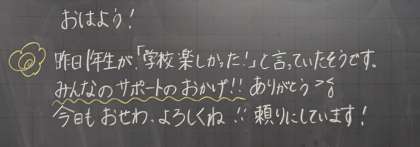 おはよう！
昨日1年生が、「学校楽しかった！」と言っていたそうです。
みんなのサポートのおかげ!! ありがとう
今日もおせわ、よろしくね!! 頼りにしています！